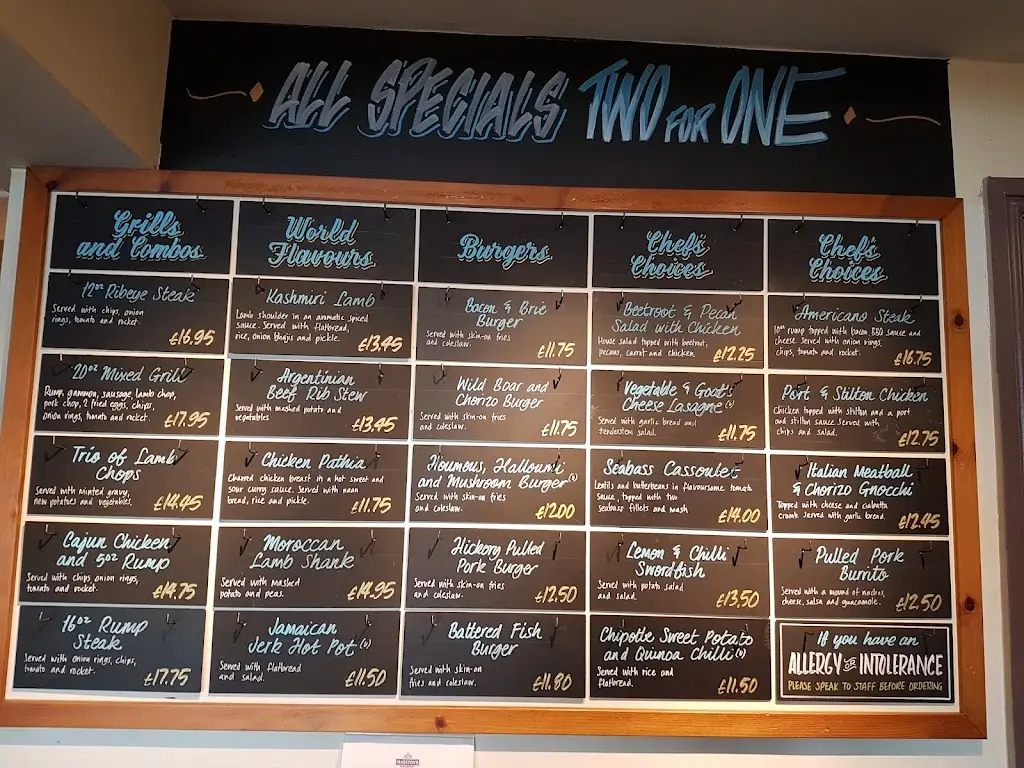 ALL SPECIALS TWO FOR ONE
Grills
and Combos
12oz Ribeye Steak
Served with chips, onion
rings, tomato and rocket.
£16.95
20oz Mixed Grill
Rump, gammon, sausage, lamb chop,
pork chop, 2 fried eggs, chips,
onion rings, tomato and rocket.
£17.95
Trio of Lamb
Chops
Served with minted gravy,
new potatoes and vegetables.
£14.45
Cajun Chicken
and 5oz Rump
Served with chips onion rings,
tomato and rocket.
£14.75
16oz Rump
Steak
Served with onion rings, chips,
tomato and rocket.
£17.75
World
Flavours
Kashmiri Lamb
Lamb shoulder in an aromatic spiced
sauce. Served with flatbread,
rice, onion bhajis and pickle.
£13.45
Argentinian
Beef Rib Stew
Served with mashed potato and
vegetables.
£13.45
Chicken Pathia
Charred chicken breast in a hot sweet and
sour curry sauce. Served with naan
bread, rice and pickle.
£11.75
Moroccan
Lamb Shank
Served with mashed
potato and peas.
£14.95
Jamaican
Jerk Hot Pot (v)
Served with flatbread
and salad.
£11.50
Burgers
Bacon & Brie
Burger
Served with skin-on fries
and coleslaw.
£11.75
Wild Boar and
Chorizo Burger
Served with skin-on fries
and coleslaw.
£11.75
Houmous, Halloumi
and Mushroom Burger (v)
Served with skin-on fries
and coleslaw.
£12.00
Hickory Pulled
Pork Burger
Served with skin-on fries
and coleslaw.
£12.50
Battered Fish
Burger
Served with skin-on
fries and coleslaw.
£11.80
Chef's
Choices
Beetroot & Pecan
Salad with Chicken
House salad topped with beetroot,
pecans, carrot and chicken.
£12.25
Vegetable & Goat's
Cheese Lasagne (v)
Served with garlic bread and
tenderstem salad.
£11.75
Seabass Cassoulet
Lentils and butterbeans in flavoursome tomato
sauce, topped with two
Seabass fillets and mash
£14.00
Lemon & Chilli
Swordfish
Served with potato salad
and salad.
£13.50
Chipotle Sweet Potato
and Quinoa Chilli (v)
Served with rice and
flatbread.
£11.50
Chef's
Choices
Americano Steak
10oz rump topped with bacon, BBQ sauce and
cheese. Served with onion rings,
chips, tomato and rocket.
£16.75
Port & Stilton Chicken
Chicken topped with stilton and a port
and stilton sauce. Served with
chips and salad.
£12.75
Italian Meatball
& Chorizo Gnocchi
Topped with cheese and ciabatta
crumb. Served with garlic bread.
£12.45
Pulled Pork
Burrito
Served with a mound of nachos,
cheese, salsa and guacamole.
£12.50
If you have an
ALLERGY OR INTOLERANCE
PLEASE SPEAK TO STAFF BEFORE ORDERING
MARSTON'S